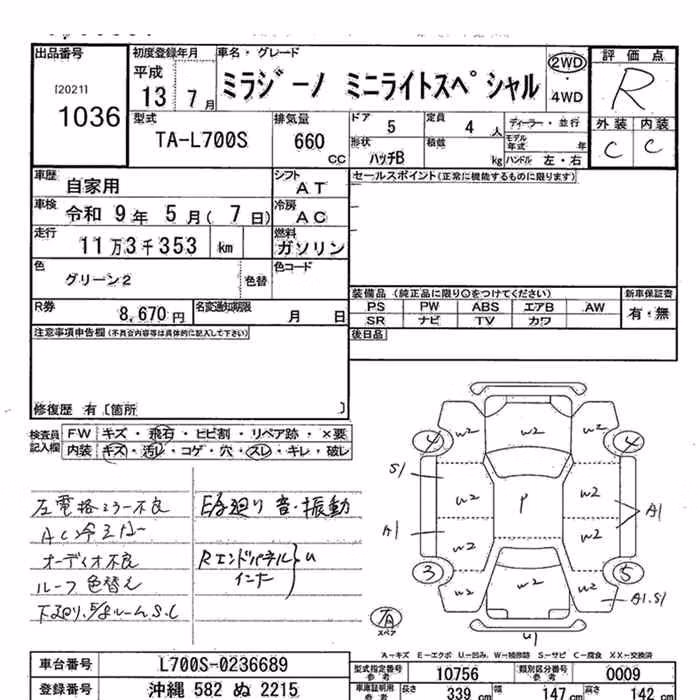 出品番号 初度登録年月 車名・グレード 評価点
[2021] 1036 平成 13年 7月 ミラジーノ ミニライトスペシャル 2WD・4WD R
型式 排気量 ドア 5 定員 4人 ディーラー・並行 外装 内装
TA-L700S 660 CC 形状 ハッチB 積数 kg モデル年式 年 ハンドル 左・右 C C
車歴 自家用 シフト AT セールスポイント(正常に機能するものに限ります)
車検 令和 9年 5月( 7日) 冷房 AC
走行 11万3千353 km 燃料 ガソリン
色 グリーン2 色替 色コード
装備品 (純正品に限り○をつけてください) 新車保証書
R券 8,670円 名変通知期限 月 日 PS PW ABS エアB AW 有・無
SR ナビ TV カワ
注意事項申告欄(不具合内容等は具体的に記入して下さい) 後日品
修復歴 有〔箇所 〕
検査員記入欄 FW キズ・飛石・ヒビ割・リペア跡・×要
内装 キズ・汚レ・コゲ・穴・スレ・キレ・破レ
左電格ミラー不良 E/g廻り 音・振動
AC冷えなし
オーディオ不良 Rエンドパネル
ルーフ色替え インナー U
下廻り, S.C
W2 W2 W2
4 4
S1 W2 P W2
A1 W2 W2 A1
3 5
W2 W2 W2 A1.S1
U1
7A スペア
A−キズ E−エクボ U−凹み W−補修跡 S−サビ C−腐食 XX−交換済
車台番号 L700S-0236689 型式指定番号 参考 10756 類別区分番号 参考 0009
登録番号 沖縄 582 ぬ 2215 車庫証明用 参考 長さ 339 cm 幅 147 cm 高さ 142 cm